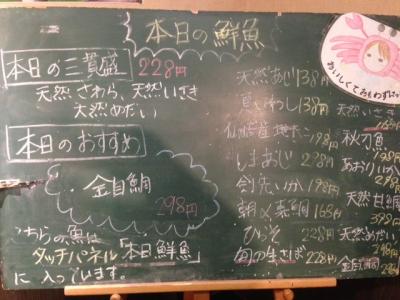 本日の鮮魚
本日の三貫盛 228円
天然さわら、天然いさき
天然めだい
本日のおすすめ
・金目鯛
298円
こちらの魚は
タッチパネル「本日鮮魚」
に入っています。
天然あじ 138円
真いわし 138円
仙台産地だこ 198円
しまあじ 298円
剣先いか 198円
朝〆真鯛 168円
228円
旬の生さば 228円
天然いさき
秋刀魚
198円
あおりいか
298円
天然甘鯛
398円
天然めだい
金目鯛
おいしくておもわず